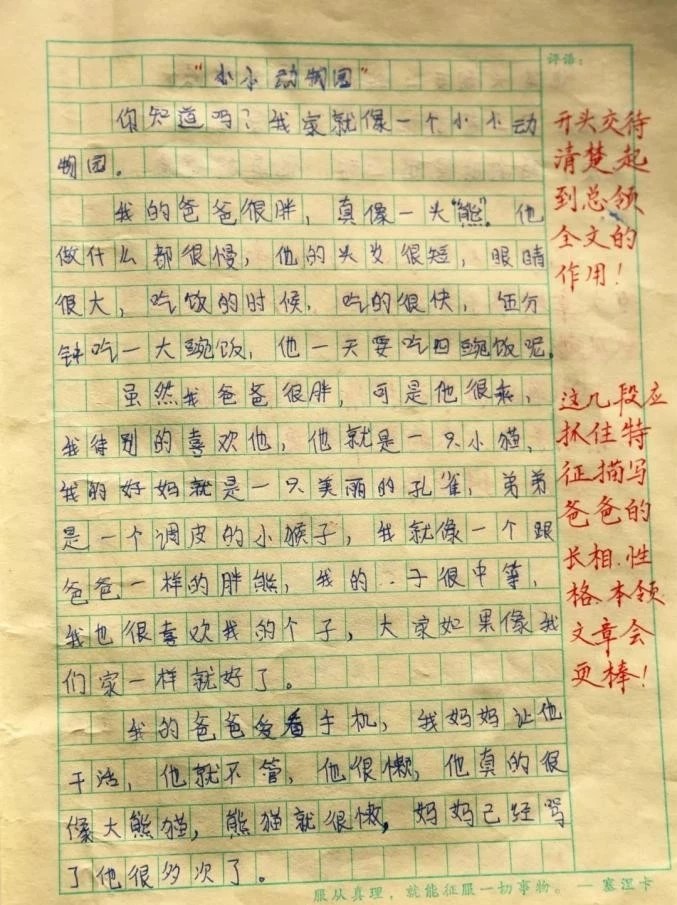 "小小动物园"
评语：
你知道吗？我家就像一个小小动
物园。
我的爸爸很胖，真像一头"熊"。他
做什么都很慢，他的头发很短，眼睛
很大，吃饭的时候，吃的很快，伍分
钟吃一大豌饭，他一天要吃四豌饭呢。
虽然我爸爸很胖，可是他很乖，
我待别的喜欢他，他就是一只小猫，
我的好妈就是一只美丽的孔雀，弟弟
是一个调皮的小猴子，我就像一个跟
爸爸一样的胖熊，我的 子很中等，
我也很喜欢我的个子，大家如果像我
们家一样就好了。
我的爸爸爱看手机，我妈妈让他
干活，他就不管，他很懒，他真的很
像大熊猫，熊猫就很懒，妈妈己经骂
了他很多次了。
开头交待
清楚起
到总领
全文的
作用！
这几段应
抓住特
征描写
爸爸的
长相.性
格.本领
文章会
更棒！
服从真理，就能征服一切事物。 — 塞涅卡